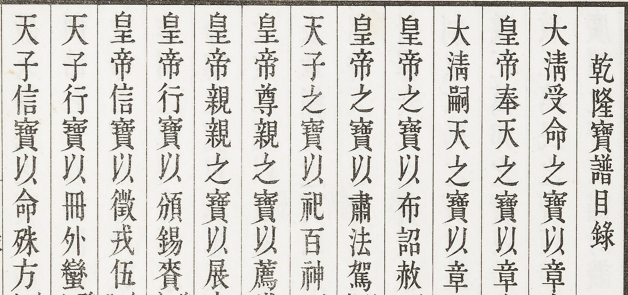 乾隆寶譜目錄
大淸受命之寶以章
皇帝奉天之寶以章
大淸嗣天之寶以章
皇帝之寶以布詔赦
皇帝之寶以肅法駕
天子之寶以祀百神
皇帝尊親之寶以薦
皇帝親親之寶以展
皇帝行寶以頒錫賚
皇帝信寶以徵戎伍
天子行寶以冊外蠻
天子信寶以命殊方